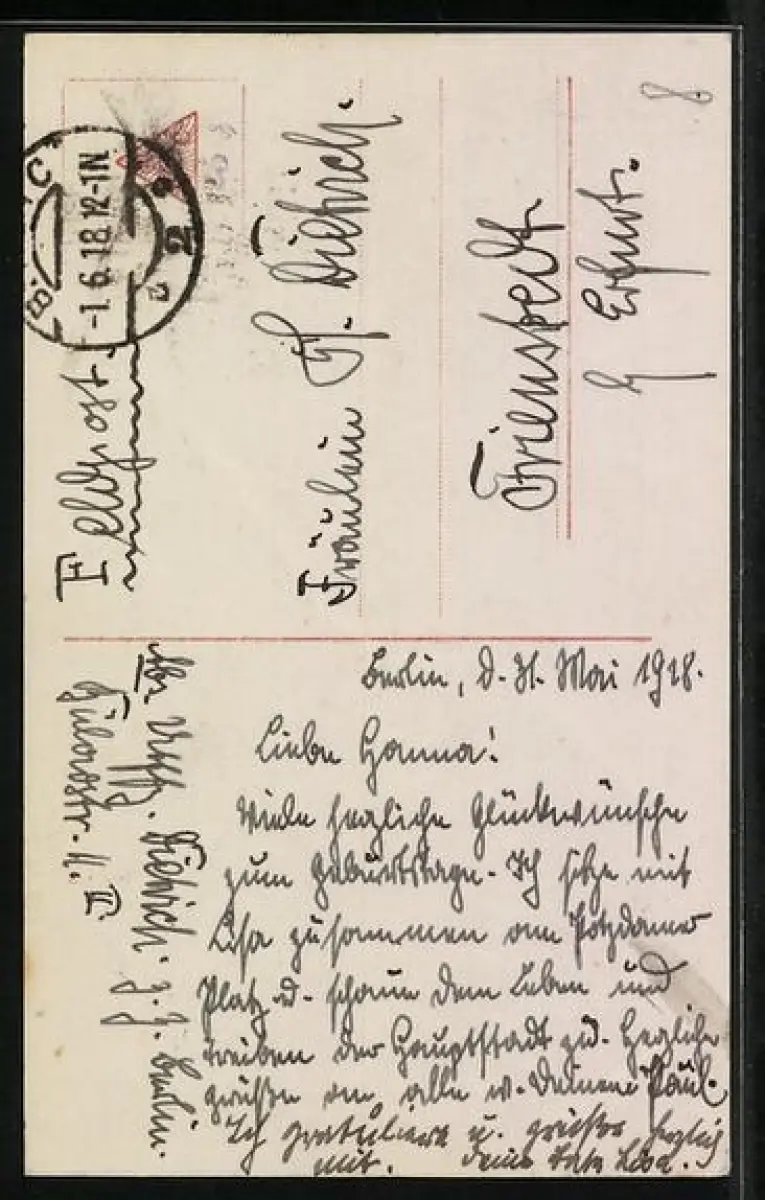 Feldpost.
B C
-1.6.18.12-1N
2
8
Fräulein H. Dietrich.
Frienstedt
b/ Erfurt.
Berlin, d. 31. Mai 1918.
Liebe Hanna!
Viele herzliche Glückwünsche
zum Geburtstage. Ich sitze mit
Lisa zusammen am Potzdamer
Platz u. schaue dem Leben und
treiben der Hauptstadt zu. Herzliche
grüßen an alle u. Deinen Paul.
Ich gratuliere u. grüße herzlich
mit. Deine Lisa.
Uffz. Dietrich. z. Z. Berlin.
II